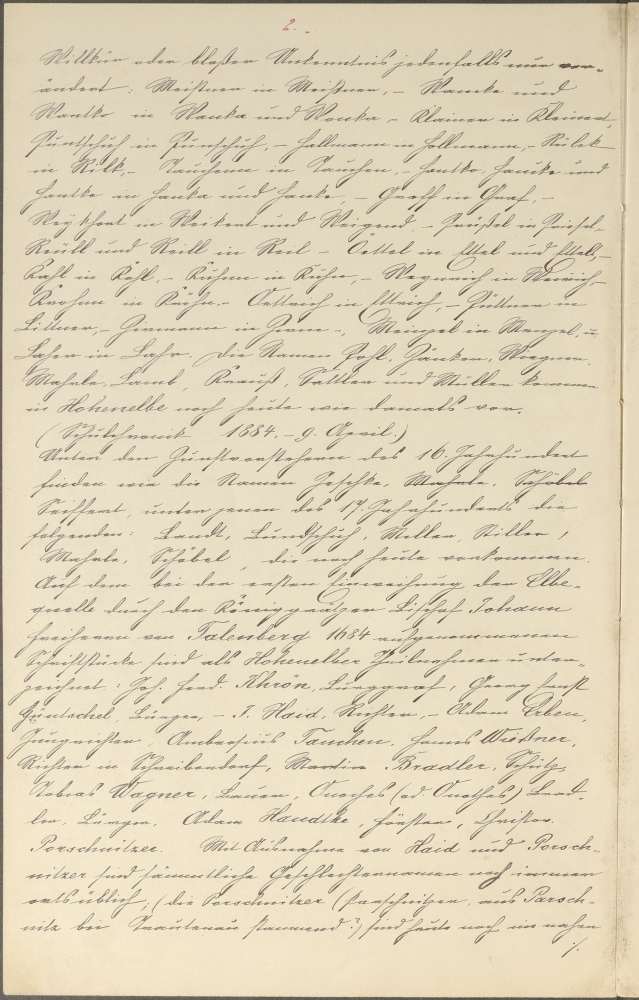 2.
Willkür oder bloßer Unkenntnis jedenfalls nur ver-
ändert: Meißner in Meistner, – Wanke und
Wantke in Wanka und Wonka, – Klainer in Kleiner,
Puntschuh in Punschuh, – Hallmann in Hollmann, – Rilek
in Rilk, – Tauchmann in Tauchen, – Hantke, Hanke und
Hantke in Hanka und Hanke, – Groff in Graf, –
Weykhart in Weikert und Weigend, – Preißel in Prießel,
Reüll und Reill in Reil – Oettel in Ettel und Ettels, –
Kahl in Kehl, – Kuhnen in Kühn, – Weynrich in Weinrich, –
Krohn in Krühn. – Oettrich in Ettrich, – Püttner in
Littner, – Hermann in Herm–, Meinzel in Menzel, u.
Laher in Lahr. Die Namen Pohl, Jänker, Wagner,
Mahrle, Lamb, Krauß, Sattler und Müller kommen
in Hohenelbe noch heute wie damals vor.
(Schulchronik 1884. – 9. April.)
Unter den Zunftvorstehern des 16. Jahrhundert
finden wir die Namen Jeschke, Mahrle, Schöbel
Seiffert, unter jenen des 17. Jahrhunderts die
folgenden: Landt, Bundschuh, Möller, Stiller,
Mahrle, Schöbel, die noch heute vorkommen.
Auf dem bei der ersten Einweihung der Elbe-
quelle durch den Königgrätzer Bischof Johann
Freiherrn von Talenberg 1684 aufgenommenen
Schriftstücke sind als Hohenelber Theilnehmer unter-
zeichnet: Joh. Ferd. Khrön, Burggraf, Georg Ernst
Guntschel, Bürger, – J. Haid, Richter, – Adam Erben,
Jungrichter, Ambrosius Tauchen, Hannes Wießner,
Richter in Schreibendorf, Martin Bradler, Schütz,
Tobias Wagner, Bauer, Onoches (od Onothes) Brad-
ler, Bürger. Adam Handtke, Förster, Christof
Porschnitzer. Mit Ausnahme von Haid und Porsch-
nitzer sind sämmtliche Geschlechtsnamen noch immer
ortsüblich, (die Porschnitzer (Parschnitzer, aus Parsch-
nitz bei Trautenau stammend?) sind heute noch im nahen
./.